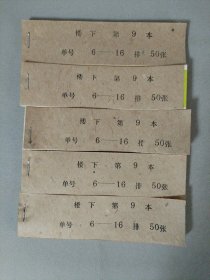 楼下第9本
单号 6——16排 50张
楼下第9本
单号 6——16排 50张
楼下第9本
单号 6——16排 50张
楼下第9本
单号 6——16排 50张
楼下第9本
单号 6——16排 50张